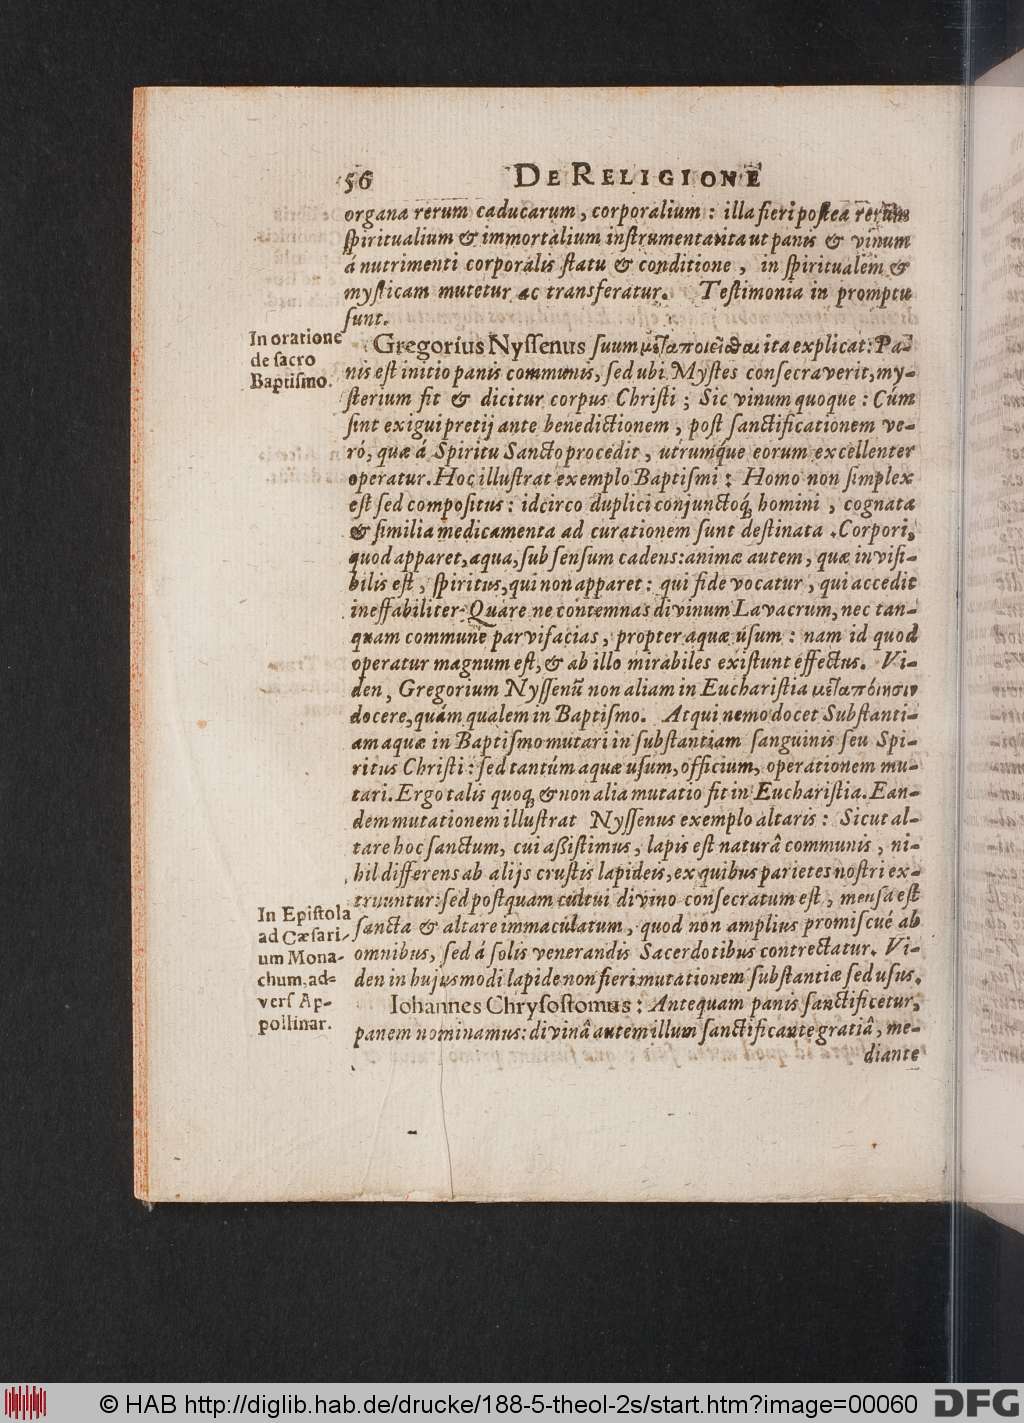 56 DE RELIGIONE
organa rerum caducarum, corporalium: illa fieri postea rerum
spiritualium & immortalium instrumenta: ita ut panis & vinum
á nutrimenti corporalis statu & conditione, in spiritualem &
mysticam mutetur ac transferatur. Testimonia in promptu
sunt.
In oratione
de sacro
Baptismo.
Gregorius Nyssenus suum μεταποιεῖσθαι ita explicat: Pa-
nis est initio panis communis, sed ubi Mystes consecraverit, my-
sterium fit & dicitur corpus Christi; Sic vinum quoque: Cúm
sint exigui pretij ante benedictionem, post sanctificationem ve-
ró, quæ á Spiritu Sancto procedit, utrumq́ue eorum excellenter
operatur. Hoc illustrat exemplo Baptismi: Homo non simplex
est sed compositus: idcirco duplici conjunctoq́; homini, cognata
& similia medicamenta ad curationem sunt destinata. Corpori,
quod apparet, aqua, sub sensum cadens: animæ autem, quæ invisi-
bilis est, spiritus, qui non apparet: qui fide vocatur, qui accedit
ineffabiliter. Quare ne contemnas divinum Lavacrum, nec tan-
quam commune parvi facias, propter aquæ úsum: nam id quod
operatur magnum est, & ab illo mirabiles existunt effectus. Vi-
den, Gregorium Nyssenū non aliam in Eucharistia μεταπόιησιν
docere, quám qualem in Baptismo. Atqui nemo docet Substanti-
am aquæ in Baptismo mutari in substantiam sanguinis seu Spi-
ritus Christi: sed tantúm aquæ usum, officium, operationem mu-
tari. Ergo talis quoq; & non alia mutatio fit in Eucharistia. Ean-
dem mutationem illustrat Nyssenus exemplo altaris: Sicut al-
tare hoc sanctum, cui aßistimus, lapis est naturâ communis, ni-
hil differens ab alijs crustis lapideis, ex quibus parietes nostri ex-
truuntur: sed postquam cultui divino consecratum est, mensa est
sancta & altare immaculatum, quod non amplius promiscué ab
omnibus, sed á solis venerandis Sacerdotibus contrectatur. Vi-
den in hujusmodi lapide non fieri mutationem substantiæ sed usus.
In Epistola
ad Cæsari-
um Mona-
chum, ad-
vers Ap-
pollinar.
Iohannes Chrysostomus: Antequam panis sanctificetur,
panem nominamus: divinâ autem illum sanctificante gratiâ, me-
diante
© HAB http://diglib.hab.de/drucke/188-5-theol-2s/start.htm?image=00060
DFG